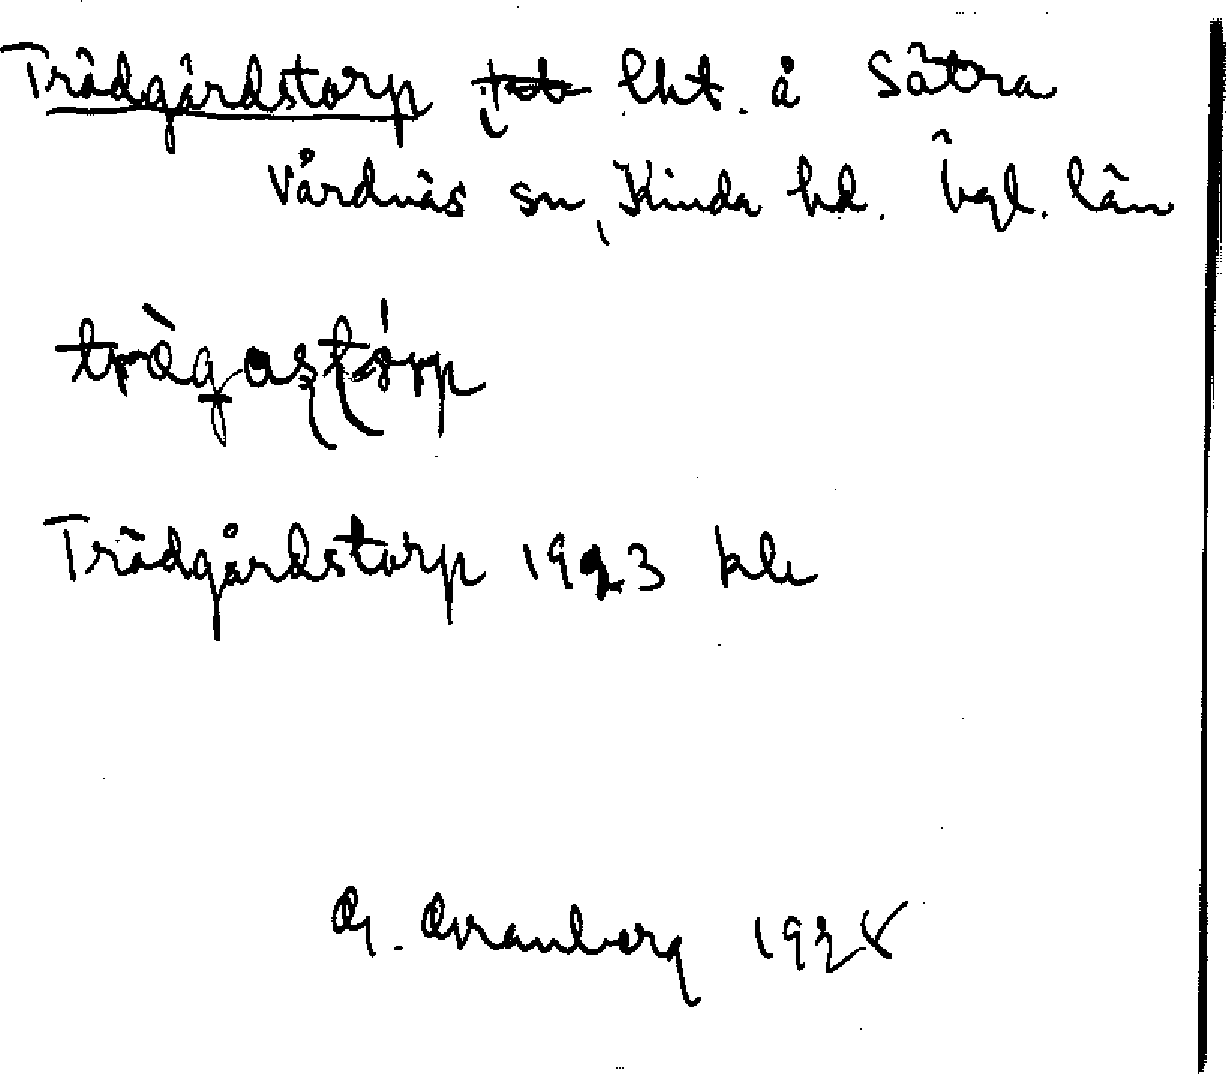 Trädgårdstorp lht. å Sätra
Vårdnäs sn, Kinda hd. Ögl. län
trägastorp
Trädgårdstorp 1923 blk
G. Granberg 1928